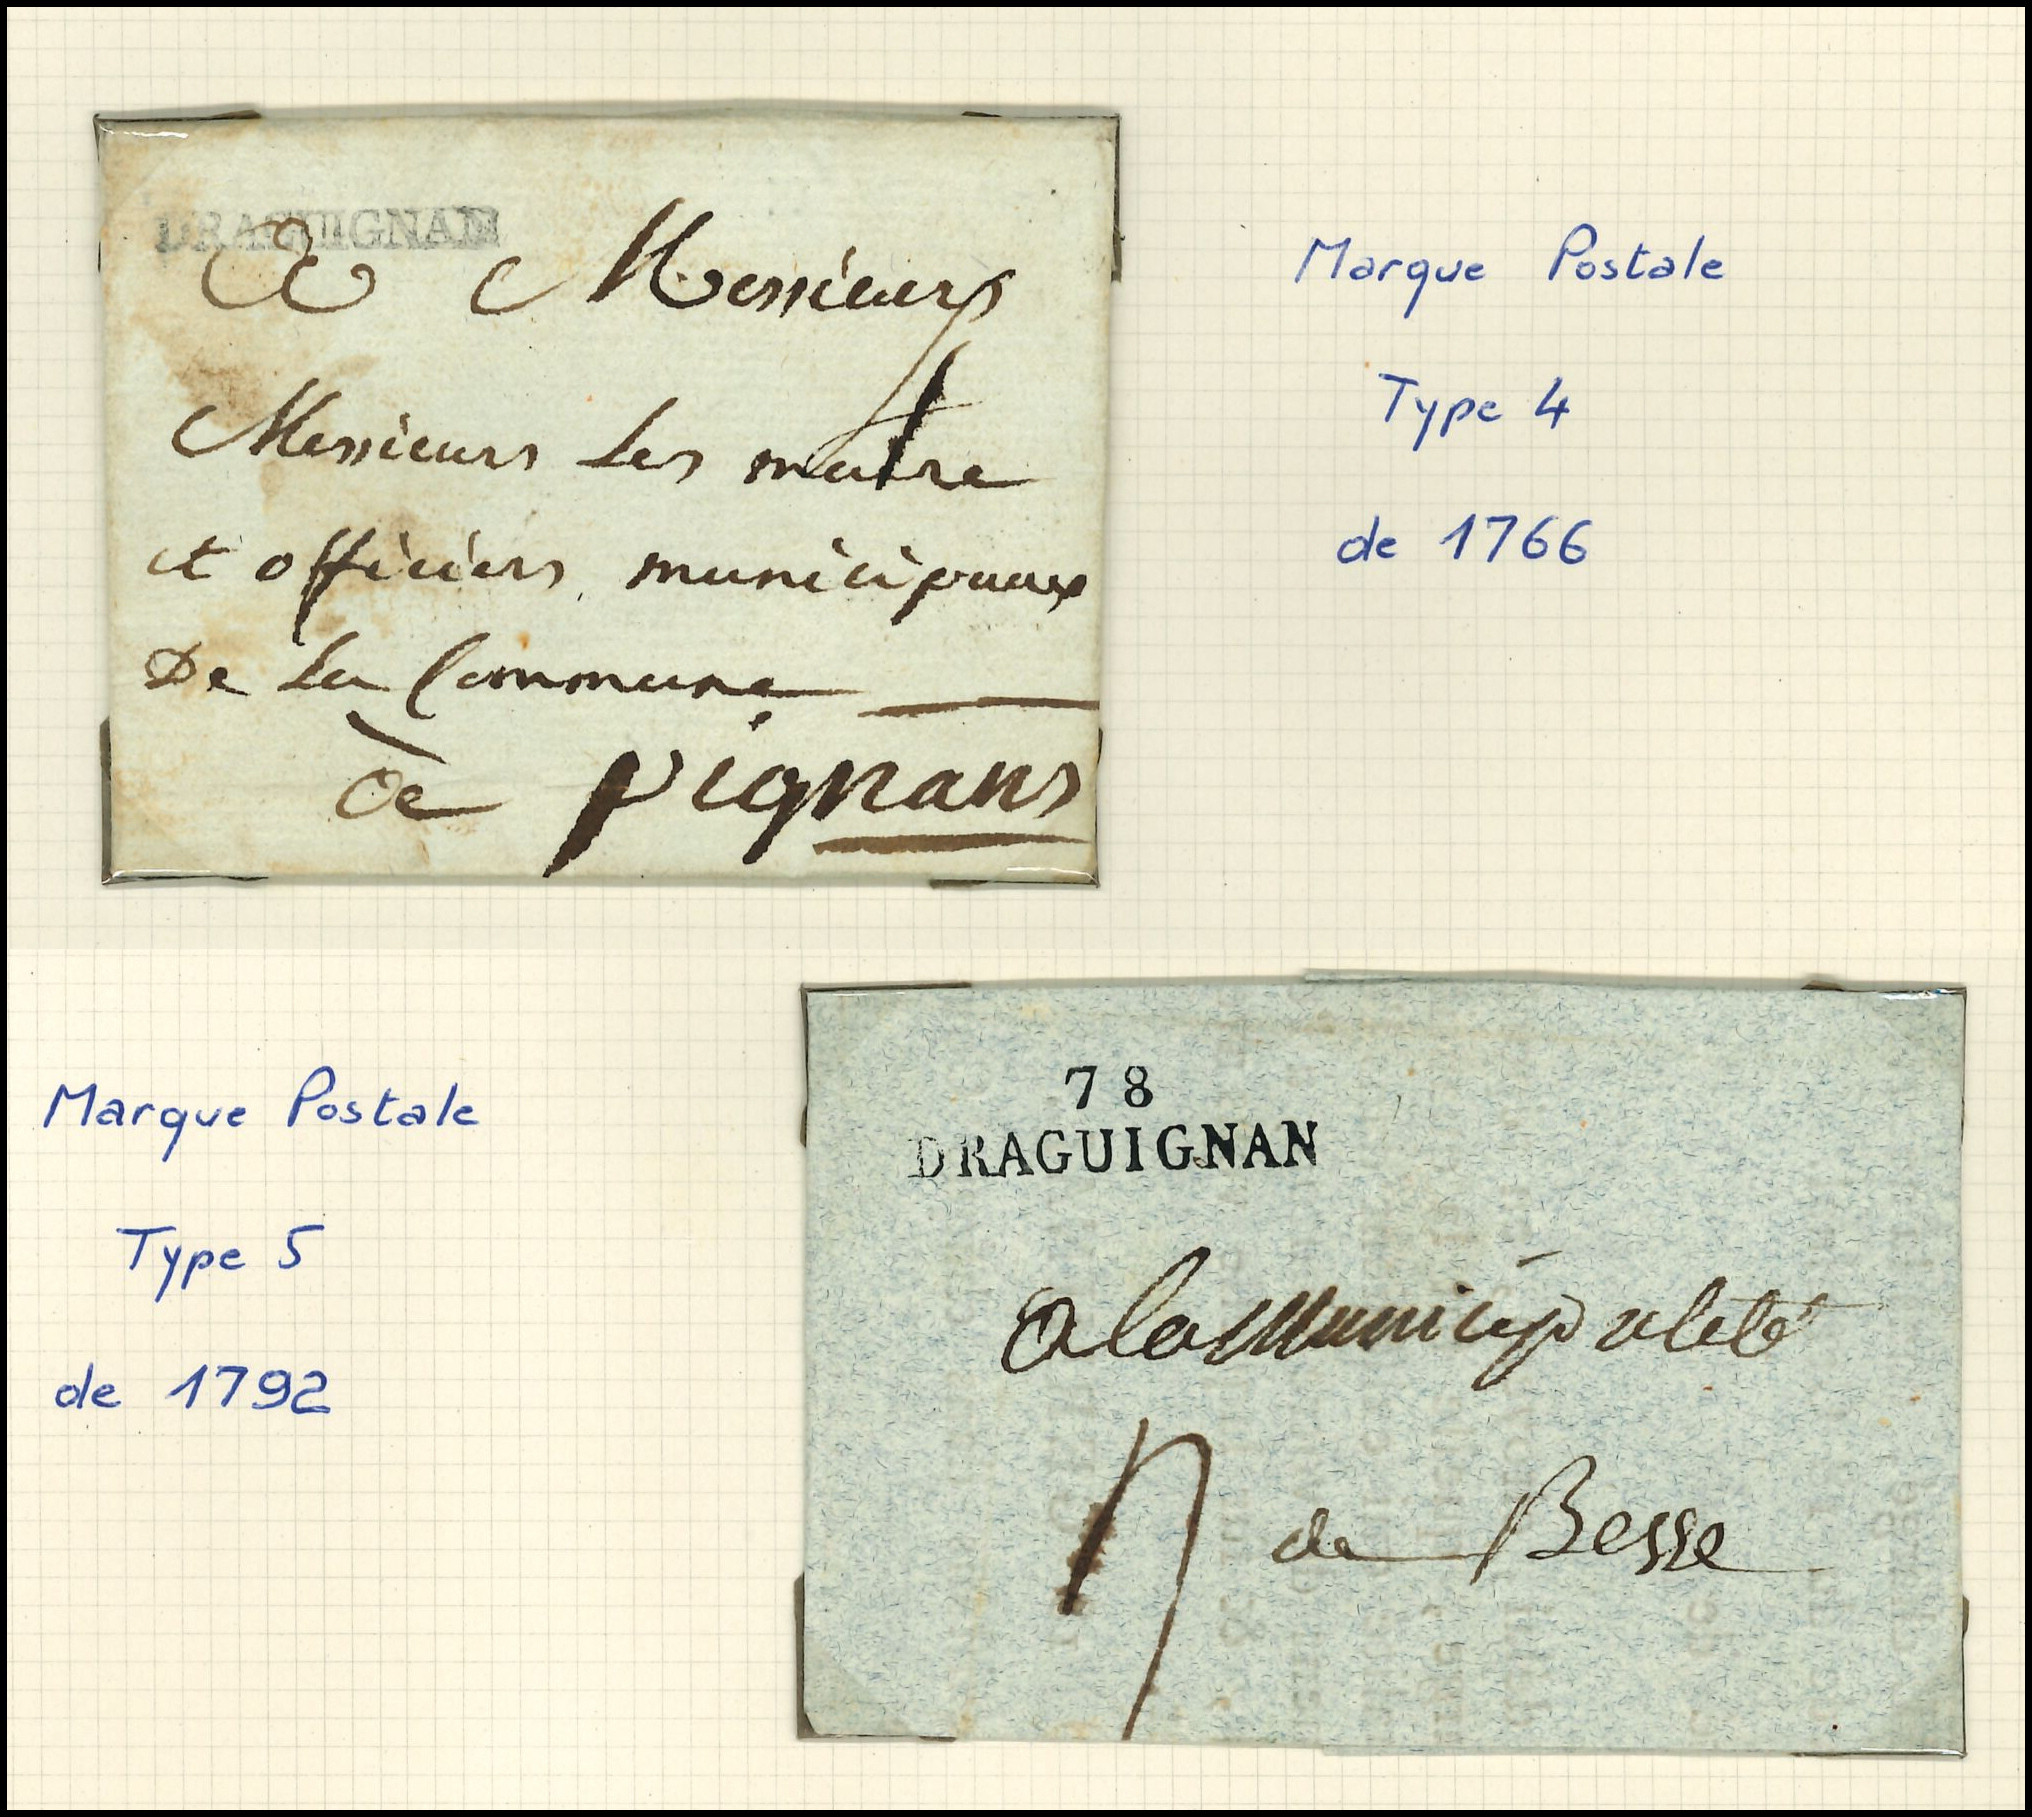 DRAGUIGNAN
A Messieurs
Messieurs Les maire
et officiers municipaux
De La Commune
de pignans
Marque Postale
Type 4
de 1766
Marque Postale
Type 5
de 1792
78
DRAGUIGNAN
a la Municipalité
de Besse